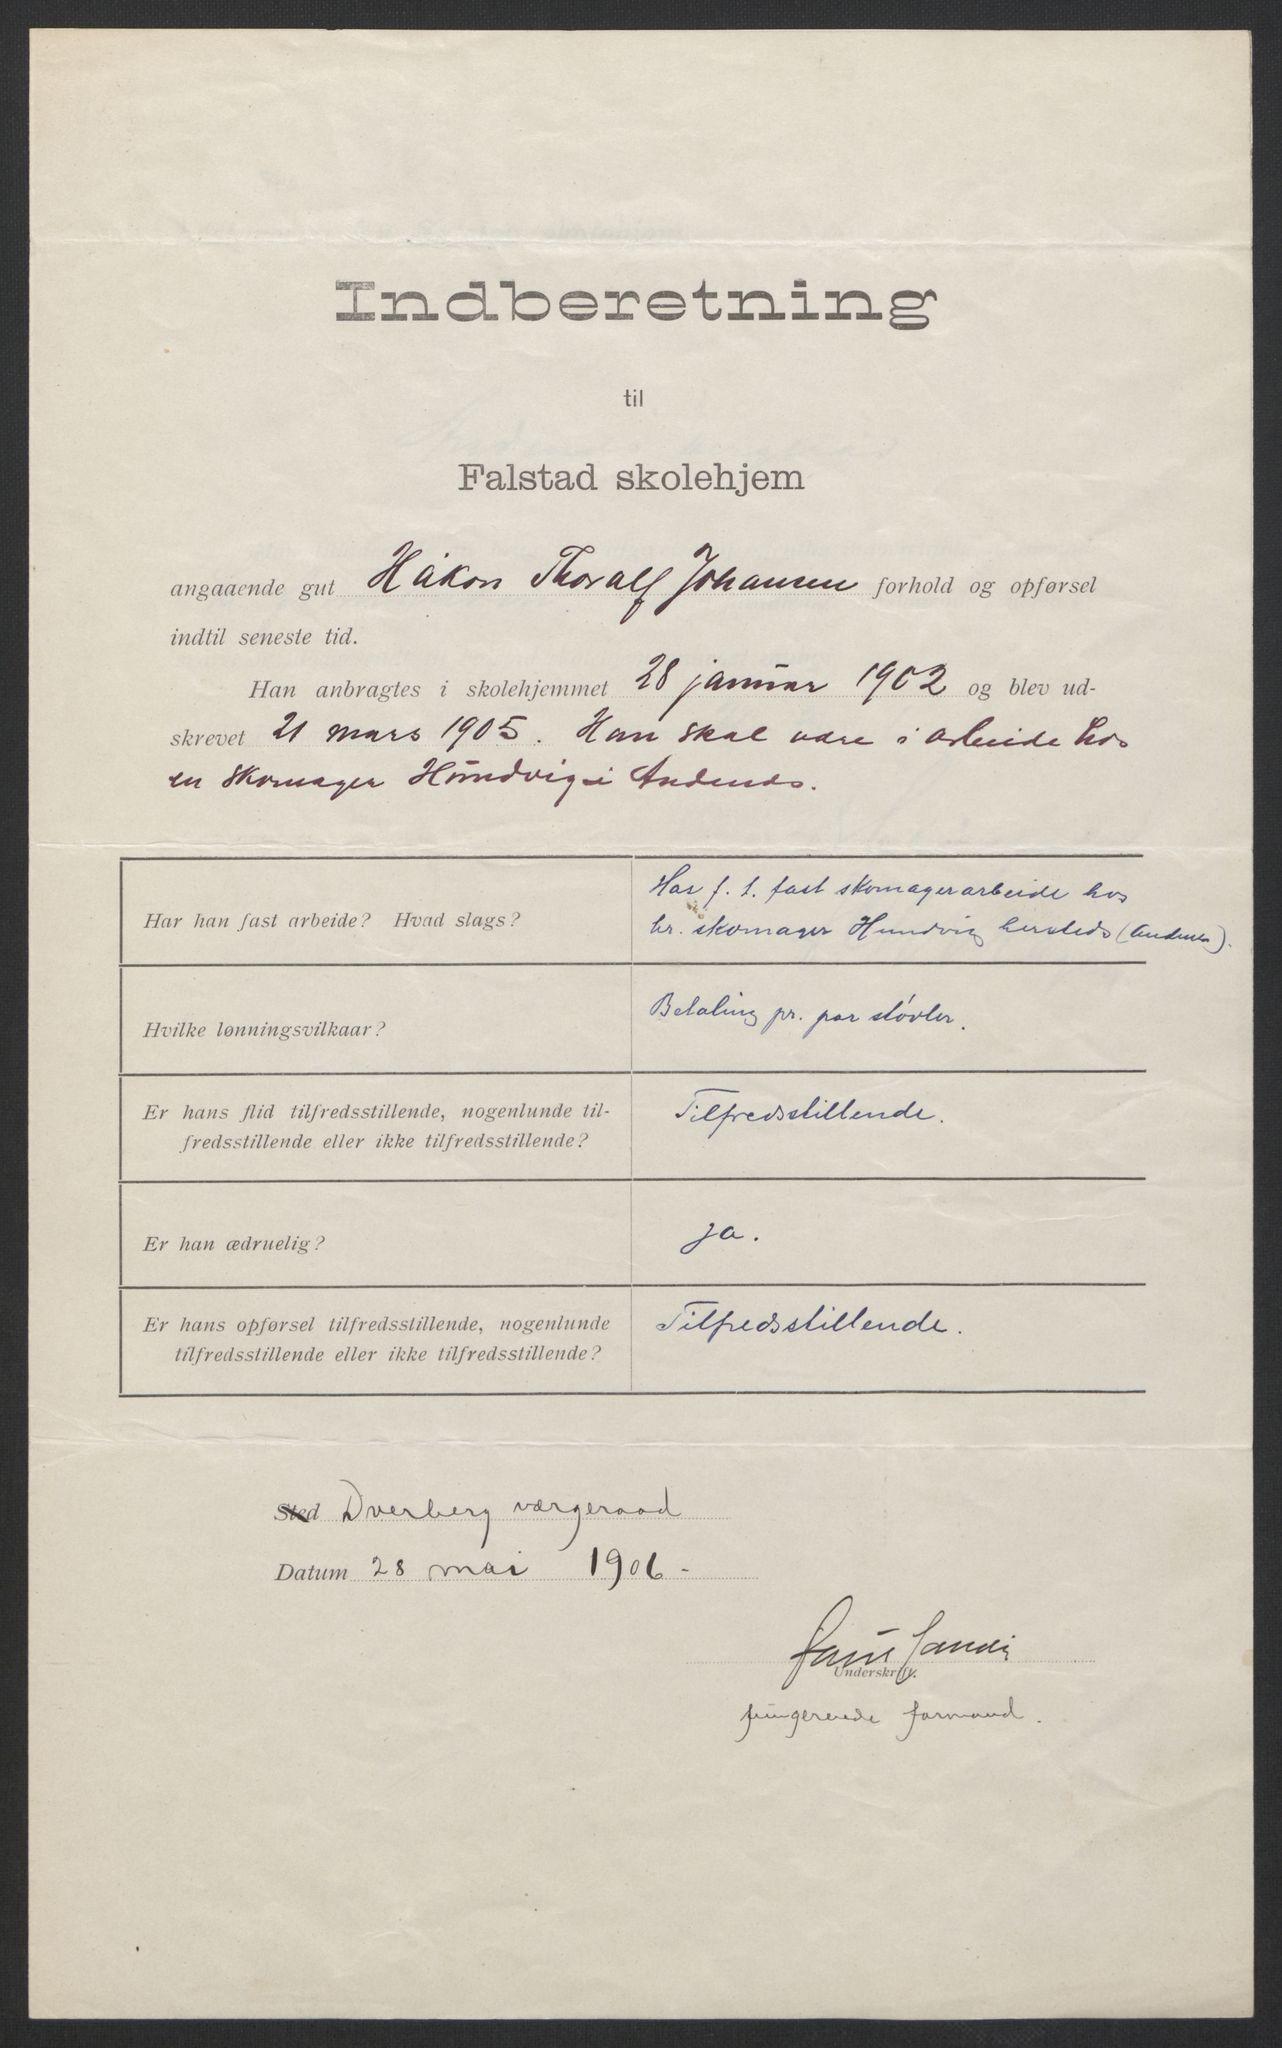 Indberetning
til
Falstad skolehjem
angaaende gut Håkon Thoralf Johansen forhold og opførsel
indtil seneste tid.
Han anbragtes i skolehjemmet 28 januar 1902 og blev ud-
skrevet 21 mars 1905. Han skal være i arbeide hos
en skomager Hundvig i Andenes.
Har han fast arbeide? Hvad slags?
Har f. t. fast skomagerarbeide hos
hr. skomager Hundvig hersteds (Andenes).
Hvilke lønningsvilkaar?
Betaling pr. par støvler.
Er hans flid tilfredsstillende, nogenlunde til-
fredsstillende eller ikke tilfredsstillende?
Tilfredsstillende.
Er han ædruelig?
Ja.
Er hans opførsel tilfredsstillende, nogenlunde
tilfredsstillende eller ikke tilfredsstillende?
Tilfredsstillende.
Sted Dverberg værgeraad
Datum 28 mai 1906 -
Underskrift.
fungerende formand.